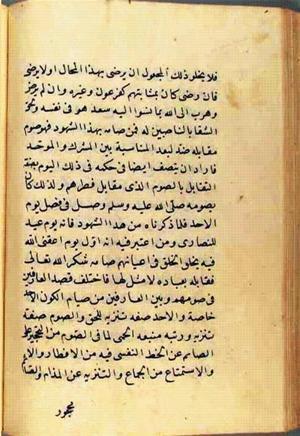 فلا يخلو ذلك المجعول ان يرضى بهذا المحال اولا يرضى
فان رضى كان بمثابتهم كفرعون وغيره وان لم يرض
وهرب الى الله مما نسبوا اليه سعد هو فى نفسه ولحق
الشقا بالناصبين له فمن صامه بهذا الشهود فهو صوم
مقابلة ضد لبعد المناسبة بين المشرك والموحد
فاراد ان يتصف ايضا فى حكمه فى ذلك اليوم بصفة
التقابل بالصوم الذى مقابل فطرهم ولذلك كان
يصومه صلى الله عليه وسلم وصل فى فضل يوم
الاحد فلما ذكرناه من هذا الشهود فانه يوم عيد
للنصارى ومن اعتبر فيه انه اول يوم اعتنى الله
فيه بخلق الخلق فى اعيانهم صامه شكرا لله تعالى
فقابله بعبادة لا مثل لها فاختلف قصد العارفين
فى صومهم ومن العارفين من صامه لكون الاحد
خاصة والاحد صفة تنزيه للحق والصوم صفة
تنزيه ورتبة منيعة الحمى لما فى الصوم من التحجير على
الصائم عن الحظ النفسى فيه من الافطار والا
والاستمتاع من الجماع والتنزيه عن المذام والصائم
محجور